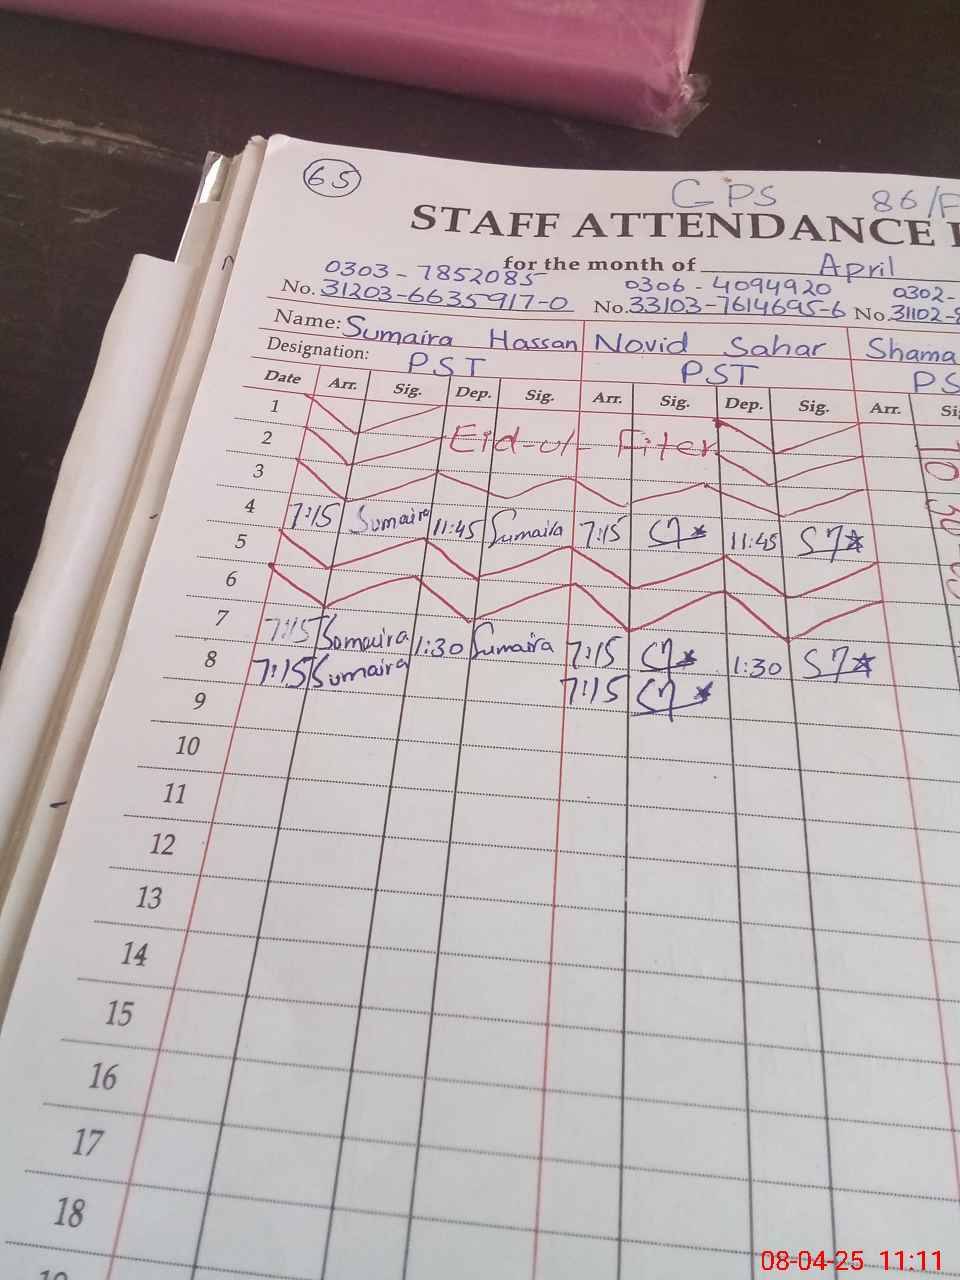 65
GPS 86/P
STAFF ATTENDANCE
for the month of April
0303-7852085 0306-4094920 0302-
No. 31203-6635917-0 No. 33103-7614695-6 No. 31102-
Name: Sumaira Hassan Novid Sahar Shama
Designation: PST PST PS
Date Arr. Sig. Dep. Sig. Arr. Sig. Dep. Sig. Arr. Si
1
2 Eid-ul-Fiter
3
4 7:15 Sumaira 11:45 Sumaira 7:15 11:45
5
6
7 7:15 Sumaira 1:30 Sumaira 7:15 1:30
8 7:15 Sumaira 7:15
9
10
11
12
13
14
15
16
17
18
08-04-25 11:11